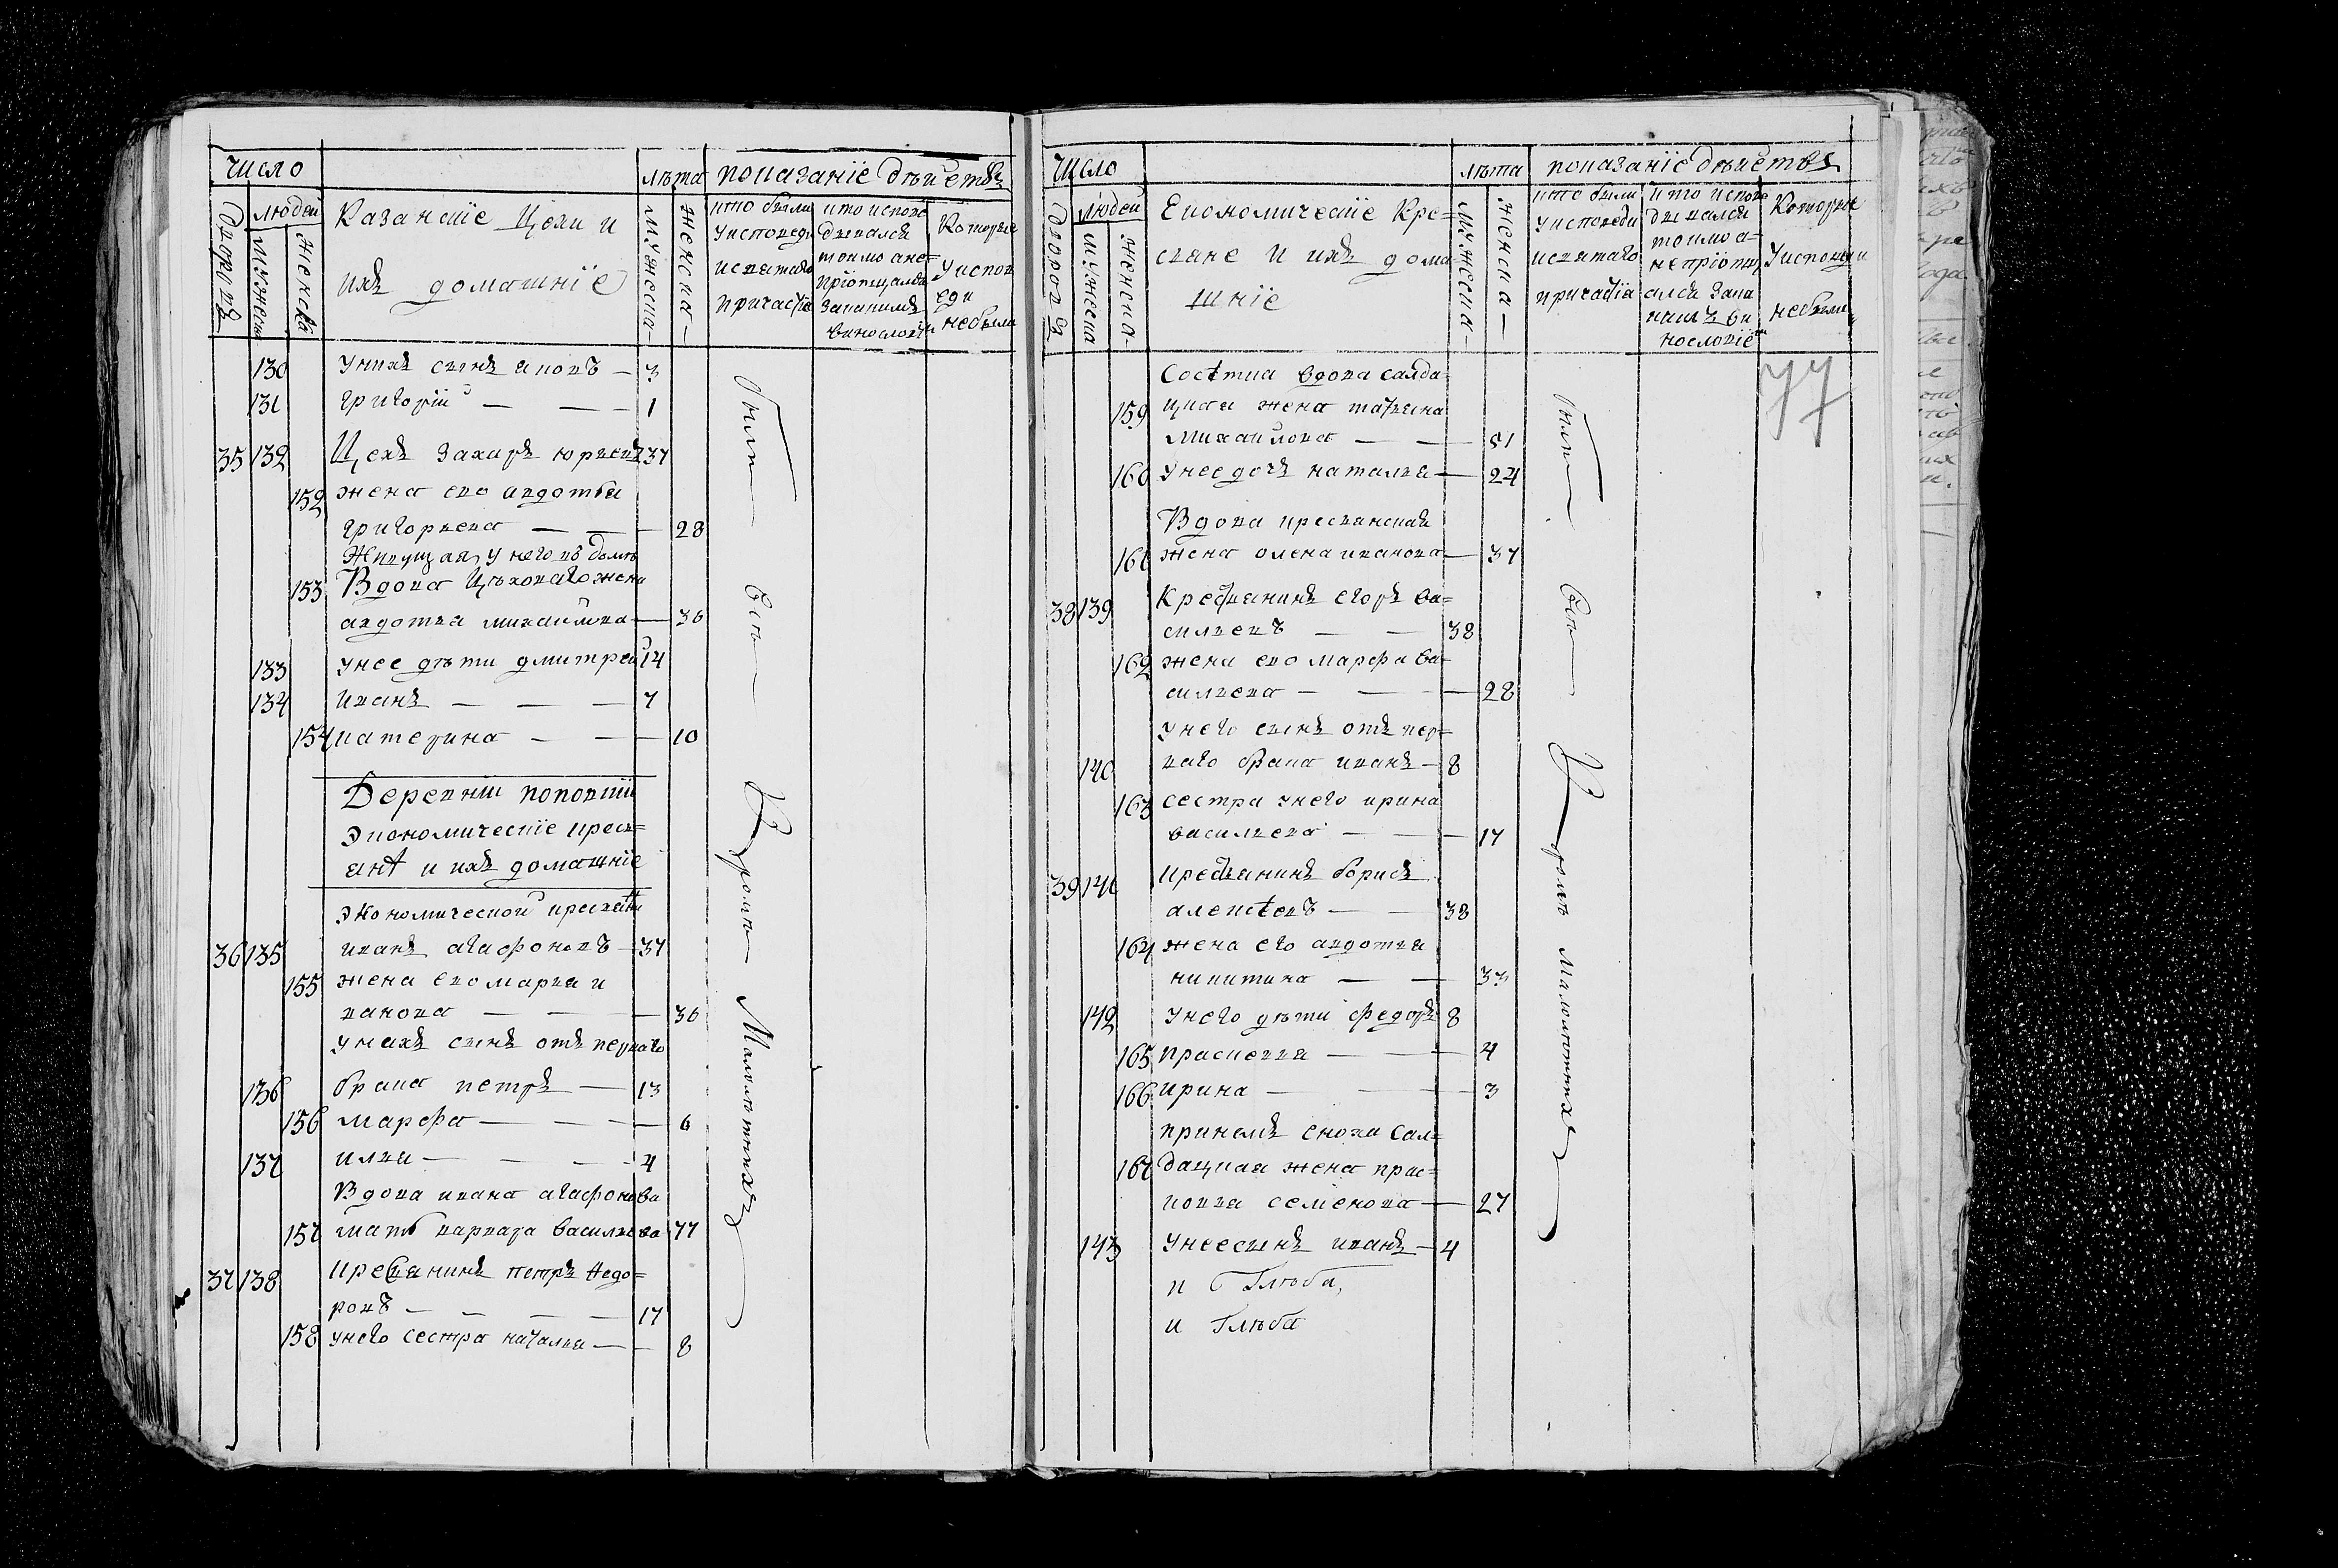 число
лѣта показанїе дѣйствъ
дворовъ
людей
мужеска
женска
Казанскїе Цехи и
ихъ домашнїе
мужеска
женска
кто были
у исповеди
и святаго
причастїя
кто испове
дывался
токмо а не
прїопщался
за каким
винословїем
Которые
у испов
еди
небыли
130 у нихъ сынъ яковъ — 3
131 григорїй — — — 1
35 132 Цехъ захаръ юрьевъ 37
152 жена ево авдотья
григорьева — — — 28
Живущая у него въ домѣ
153 Вдова Цѣховаго жена
авдотья михайлова — 36
133 у нее дѣти дмитрей 14
134 иванъ — — — 7
154 катерина — — — 10
Деревни поповки
Экономическїе кресть=
янѣ и ихъ домашнїе
экономической крестьянинъ
36 135 иванъ агафоновъ — 37
155 жена ево марья и
ванова — — — 36
у нихъ сынъ отъ перваго
136 брака петръ — 13
156 марфа — — — 6
137 илья — — — 4
Вдова ивана агафонова
157 мать варвара васильева 77
37 138 крестьянинъ петръ Ѳедо=
ровъ — — — — 17
158 у него сестра наталья — — 8
были
вси
Кромѣ
Малолѣтнихъ
число
лѣта показанїе дѣйствъ
дворовъ
людей
мужеска
женска
Економическїе Кре=
стяне и ихъ дома
шнїе
мужеска
женска
кто были
у исповеди
и святаго
причастїя
кто испове
дывался
токмо а
не прїопщ
ался за ка
кимъ ви
нословїемъ
Которые
у исповеди
небыли
77
Состѣтка вдова салда=
159 цкая жена татьяна
михайлова — — — 51
160 у нее дочь наталья — 24
Вдова крестьянская
161 жена олена иванова — 37
38 139 Крестьянинъ егоръ ва=
сильевъ — — 38
162 жена ево марфа ва=
сильева — — — 28
у него сынъ отъ пер=
140 ваго брака иванъ — 8
163 сестра у него ирина
васильева — — — 17
39 141 крестьянинъ борисъ
алексѣевъ — — 38
164 жена его авдотья
никитина — — 33
142 у него дѣти федоръ 8
165 прасковья — — — 4
166 ирина — — — 3
при немъ сноха сал=
167 дацкая жена прас=
ковья семенова — 27
143 у нее сынъ иванъ — 4
п С Глѣба,
и Глѣба
были
вси
Кромѣ
Малолѣтнихъ